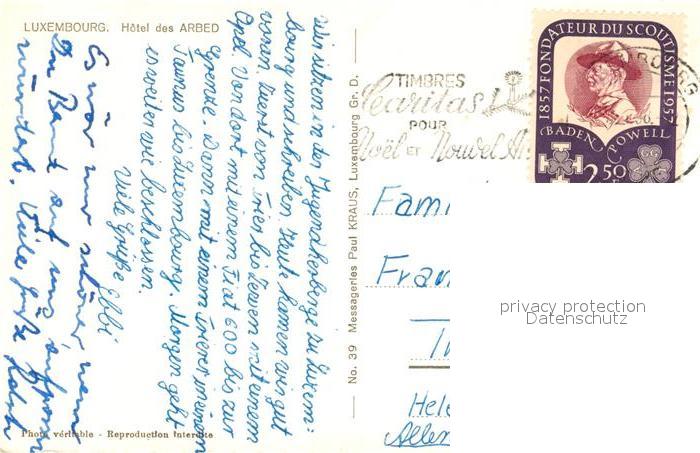 LUXEMBOURG. Hôtel des ARBED
Wir sitzen in der Jugendherberge in Luxem=
bourg und schreiben. Heute kamen wir gut
voran. Zuerst von Trier bis Konz mit einem
Opel. Von dort mit einem Fiat 600 bis zur
Grenze. Dann mit einem Trierer in einem
Taunus bis Luxembourg. Morgen geht
es weiter wie beschlossen.
Viele Grüße Ebbi
Es wär nur schöner, wenn
Du Bernd auf uns aufpassen
würdest. Viele Grüße
Photo véritable - Reproduction interdite
No. 39 Messageries Paul KRAUS, Luxembourg Gr. D.
TIMBRES
Caritas
POUR
Noël ET Nouvel An
1857 FONDATEUR DU SCOUTISME 1957
BADEN POWELL
2,50
F
Fami
Fran
Hele
Allem
privacy protection
Datenschutz